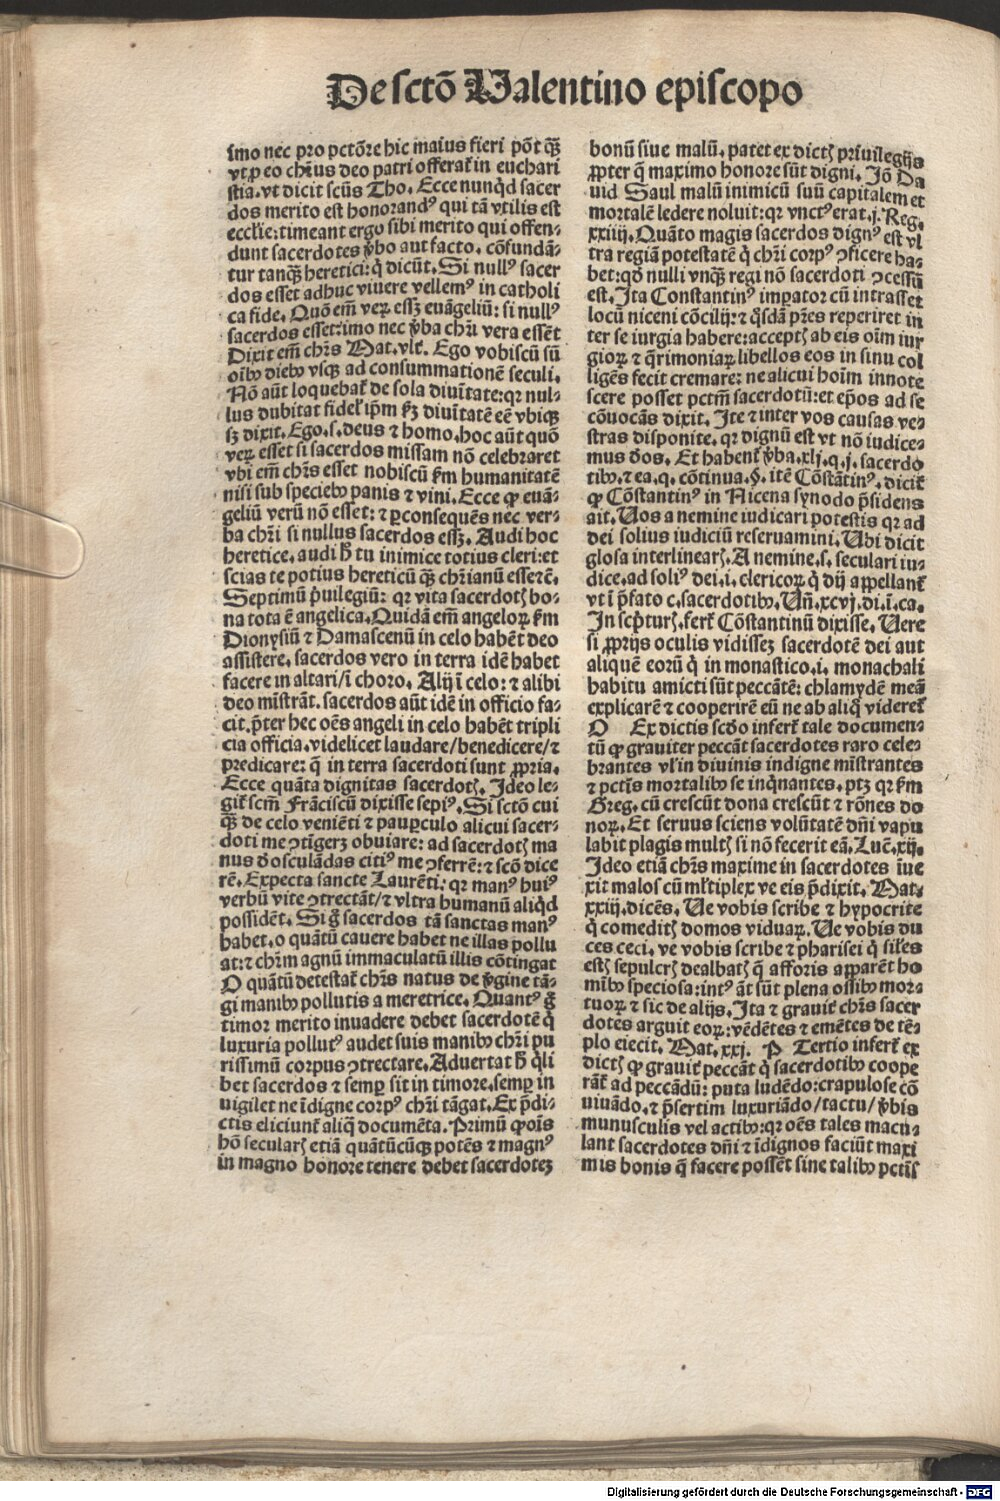 De sctō Valentino episcopo
imo nec pro pctōre hic maius fieri pōt qꝫ
vt ꝑ eo chꝛius deo patri offerat in euchari
stia. vt dicit scūs Tho. Ecce nunqd sacer
dos merito est honorandꝰ qui tā vtilis est
ecclie: timeant ergo sibi merito qui offen-
dunt sacerdotes ꝟbo aut facto. cōfundā-
tur tanqꝫ heretici: q̇ dicūt. Si nullꝰ sacer
dos esset adhuc viuere vellemꝰ in catholi
ca fide. Quō em̄ veꝝ essꝫ euāgeliū: si nullꝰ
sacerdos esset: imo nec ꝟba chꝛi vera essēt
Dixit em̄ chꝛs Mat. vlt. Ego vobiscū sū
oībꝰ diebꝰ vsqꝫ ad consummationē seculi.
Nō aūt loquebat de sola diuītate: qꝛ nul-
lus dubitat fidel' ip̄m ẜm diuītatē eē vbiqꝫ
sꝫ dixit. Ego. s. deus ⁊ homo. hoc aūt quō
veꝝ esset si sacerdos missam nō celebraret
vbi em̄ chꝛs esset nobiscū ẜm humanitatē
nisi sub speciebꝰ panis ⁊ vini. Ecce ꝙ euā-
geliū verū nō esset: ⁊ ꝑconsequēs nec ver-
ba chꝛi si nullus sacerdos essꝫ. Audi hoc
heretice. audi h̄ tu inimice totius cleri: et
scias te potius hereticū qꝫ chꝛianū esse ꝛc̄.
Septimū p̄uilegiū: qꝛ vita sacerdotꝭ bo-
na tota ē angelica. Quidā em̄ angeloꝝ ẜm
Dionysiū ⁊ Damascenū in celo habēt deo
assistere. sacerdos vero in terra idē habet
facere in altari/ī choro. Alij ī celo: ⁊ alibi
deo mīstrāt. sacerdos aūt idē in officio fa-
cit. p̄ter hec oēs angeli in celo habēt tripli
cia officia. videlicet laudare/benedicere/⁊
predicare: q̄ in terra sacerdoti sunt ꝓpria.
Ecce quāta dignitas sacerdotꝭ. Ideo le-
git sc̄m Frāciscū dixisse sepiꝰ. Si sctō cui
qꝫ de celo veniēti ⁊ pauꝑculo alicui sacer-
doti me ꝯtigerꝫ obuiare: ad sacerdotꝭ ma
nus deosculādas citiꝰ me ꝯferrē: ⁊ scō dice
rē. Expecta sancte Laurēti: qꝛ manꝰ huiꝰ
verbū vite ꝯtrectāt/⁊ vltra humanū aliqd
possidēt. Si g̊ sacerdos tā sanctas manꝰ
habet. o quātū cauere habet ne illas pollu
at: ⁊ chꝛm agnū immaculatū illis cōtingat
O quātū detestat chꝛs natus de ꝟgine tā-
gi manibꝰ pollutis a meretrice. Quantꝰ g̊
timor merito inuadere debet sacerdotē q̇
luxuria pollutꝰ audet suis manibꝰ chꝛi pu
rissimū corpus ꝯtrectare. Aduertat h̄ q̇li
bet sacerdos ⁊ semꝑ sit in timore. semꝑ in
uigilet ne īdigne corpꝰ chꝛi tāgat. Ex p̄di-
ctis eliciunt aliq̄ documēta. Primū ꝙ oīs
hō secularꝭ etiā quātūcūqꝫ potēs ⁊ magnꝰ
in magno honore tenere debet sacerdoteꝫ
bonū siue malū. patet ex dictꝭ priuilegijs
ꝓpter q̄ maximo honore sūt digni. Iō Da
uid Saul malū inimicū suū capitalem et
mortalē ledere noluit: qꝛ vnctꝰ erat. j. Reg.
xxiiij. Quāto magis sacerdos dignꝰ est vl
tra regiā potestatē q̇ chꝛi corpꝰ ꝯficere ha-
bet: qd nulli vnqꝫ regi nō sacerdoti ꝯcessū
est. Ita Constantinꝰ imꝑator cū intrasset
locū niceni cōcilij: ⁊ q̄sdā p̄res reperiret in
ter se iurgia habere: acceptꝭ ab eis oīm iur
gioꝝ ⁊ q̄rimoniaꝝ libellos eos in sinu col
ligēs fecit cremare: ne alicui hoīm innote
scere posset pctm̄ sacerdotū: et ep̄os ad se
cōuocās dixit. Ite ⁊ inter vos causas ve-
stras disponite. qꝛ dignū est vt nō iudice-
mus deos. Et habent ꝟba. xlj. q. j. sacerdo
tibꝰ. ⁊ ea. q. cōtinua. §. itē Cōstātinꝰ. dicit
ꝙ Cōstantinꝰ in Nicena synodo p̄sidens
ait. Uos a nemine iudicari potestis qꝛ ad
dei solius iudiciū reseruamini. Ubi dicit
glosa interlinearꝭ. A nemine. s. seculari iu-
dice. ad soliꝰ dei. i. clericoꝝ q̇ dij appellant
vt ī p̄fato c. sacerdotibꝰ. Uñ. xcvj. di. ī. ca.
In scpturꝭ. fert Cōstantinū dixisse. Uere
si ꝓprijs oculis vidisseꝫ sacerdotē dei aut
aliquē eorū q̇ in monastico. i. monachali
habitu amicti sūt peccātē: chlamydē meā
explicarē ⁊ cooperirē eū ne ab aliq̇ videret
O Ex dictis scdo infert tale documen-
tū ꝙ grauiter peccāt sacerdotes raro cele-
brantes vl' in diuinis indigne mīstrantes
⁊ pctis mortalibꝰ se inq̇nantes. ptꝫ qꝛ ẜm
Greg. cū crescūt dona crescūt ⁊ rōnes do
noꝝ. Et seruus sciens volūtatē dn̄i vapu
labit plagis multꝭ si nō fecerit eā. Luc̄. xij.
Ideo etiā chꝛs maxime in sacerdotes īue
xit malos cū mltiplex ve eis p̄dixit. Mat.
xxiij. dicēs. Ue vobis scribe ⁊ hypocrite
q̇ comeditꝭ domos viduaꝝ. Ue vobis du
ces ceci. ve vobis scribe ⁊ pharisei q̇ siles
estꝭ sepulcrꝭ dealbatꝭ q̄ afforis apparēt ho
mībꝰ speciosa: intꝰ āt sūt plena ossibꝰ mor-
tuoꝝ ⁊ sic de alijs. Ita ⁊ grauit chꝛs sacer
dotes arguit eoꝝ: vēdētes ⁊ emētes de tē-
plo eiecit. Mat. xxj. P Tertio infert ex
dictꝭ ꝙ grauit peccāt q̇ sacerdotibꝰ coope
rāt ad peccādū: puta ludēdo: crapulose cō
viuādo. ⁊ p̄sertim luxuriādo/tactu/ꝟbis
munusculis vel actibꝰ: qꝛ oēs tales macu-
lant sacerdotes dn̄i ⁊ īdignos faciūt maxi
mis bonis q̄ facere possēt sine talibꝰ pctis
Digitalisierung gefördert durch die Deutsche Forschungsgemeinschaft - DFG